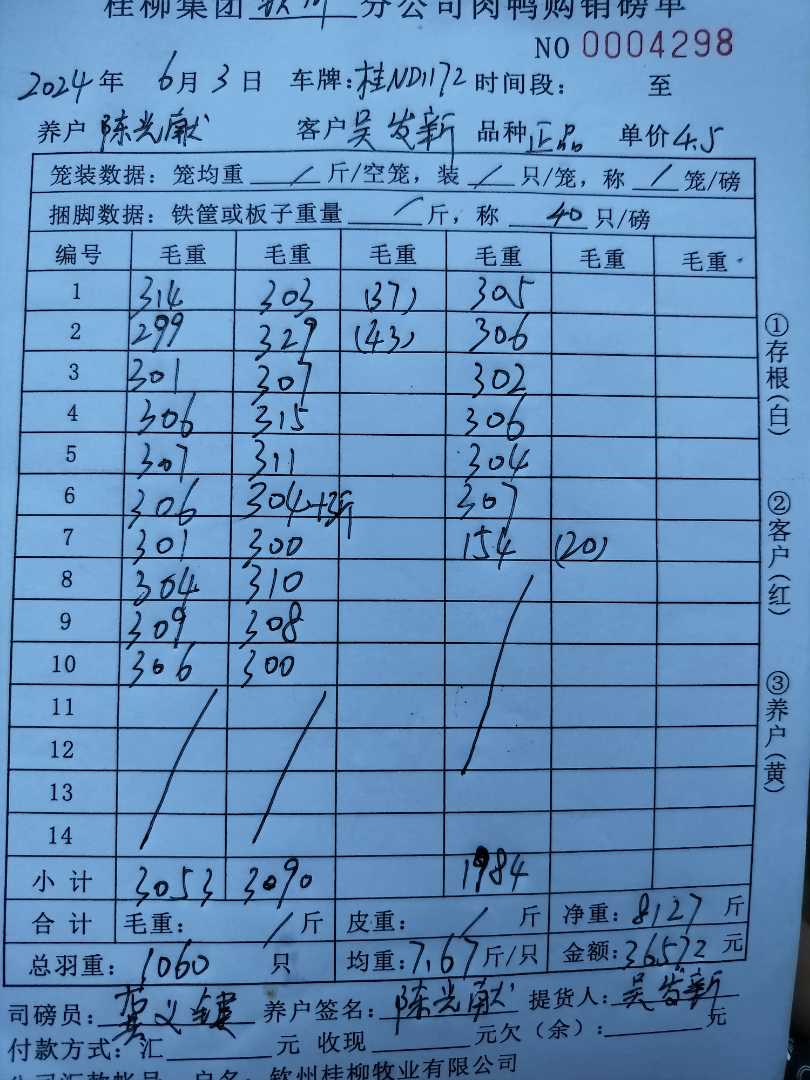 桂柳集团 钦州 分公司肉鸭购销磅单
NO 0004298
2024年 6月3日 车牌:桂ND1172 时间段: 至
养户 陈光献 客户 吴发新 品种 正品 单价 4.5
笼装数据: 笼均重 / 斤/空笼, 装 / 只/笼, 称 / 笼/磅
捆脚数据: 铁筐或板子重量 / 斤, 称 40 只/磅
编号 毛重 毛重 毛重 毛重 毛重 毛重
1 314 303 (37) 305
2 299 329 (43) 306
3 301 307 302
4 306 315 306
5 307 311 304
6 306 304+3斤 307
7 301 300 154 (20)
8 304 310
9 309 308
10 306 300
11
12
13
14
小计 3053 3090 1984
合计 毛重: / 斤 皮重: / 斤 净重: 8127 斤
总羽重: 1060 只 均重: 7.67 斤/只 金额: 36572 元
司磅员: 义 养户签名: 陈光献 提货人: 吴发新
付款方式: 汇 元 收现 元欠(余): 元
公司汇款帐号 户名: 钦州桂柳牧业有限公司
①存根(白)
②客户(红)
③养户(黄)